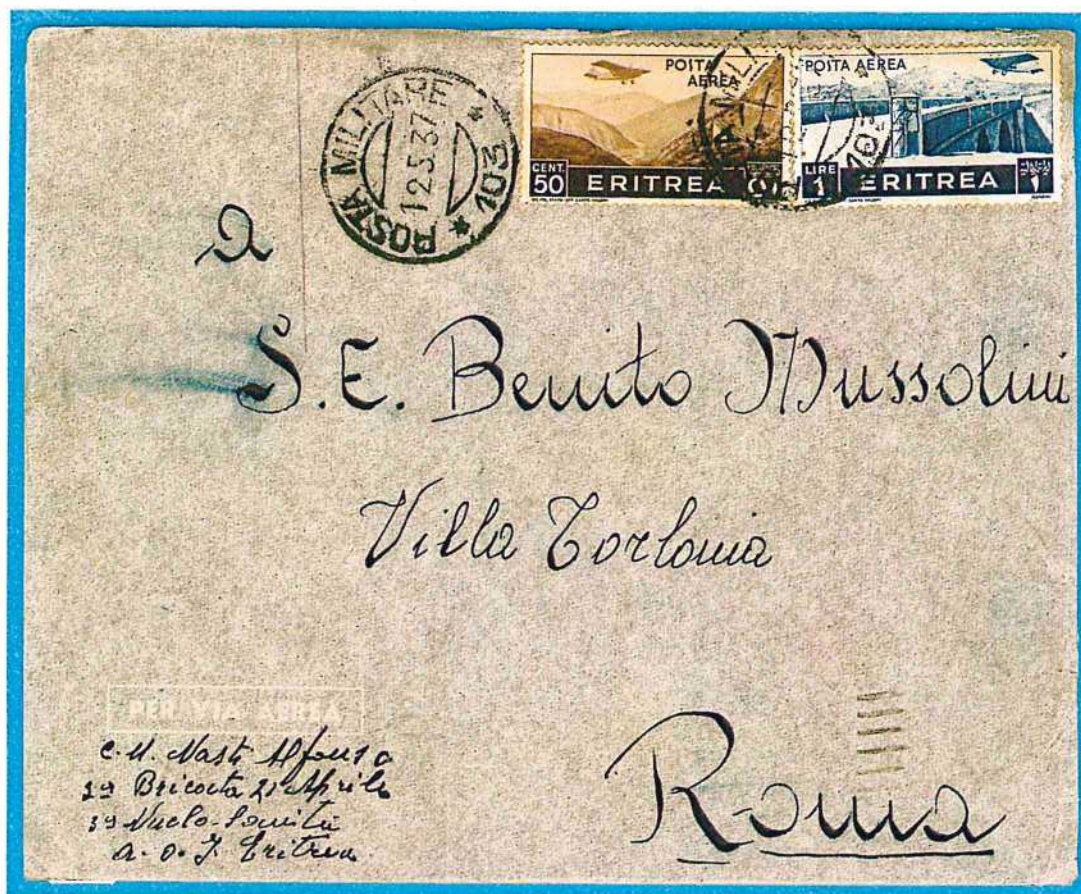 POSTA MILITARE * 103 *
12.5.37
POSTA AEREA
CENT. 50 ERITREA
POSTA AEREA
LIRE 1 ERITREA
a
S. E. Benito Mussolini
Villa Torlonia
Roma
PER VIA AEREA
C. N. Nasti Alfonso
21 Aprile
3ª Sanità
A. O. I. Eritrea